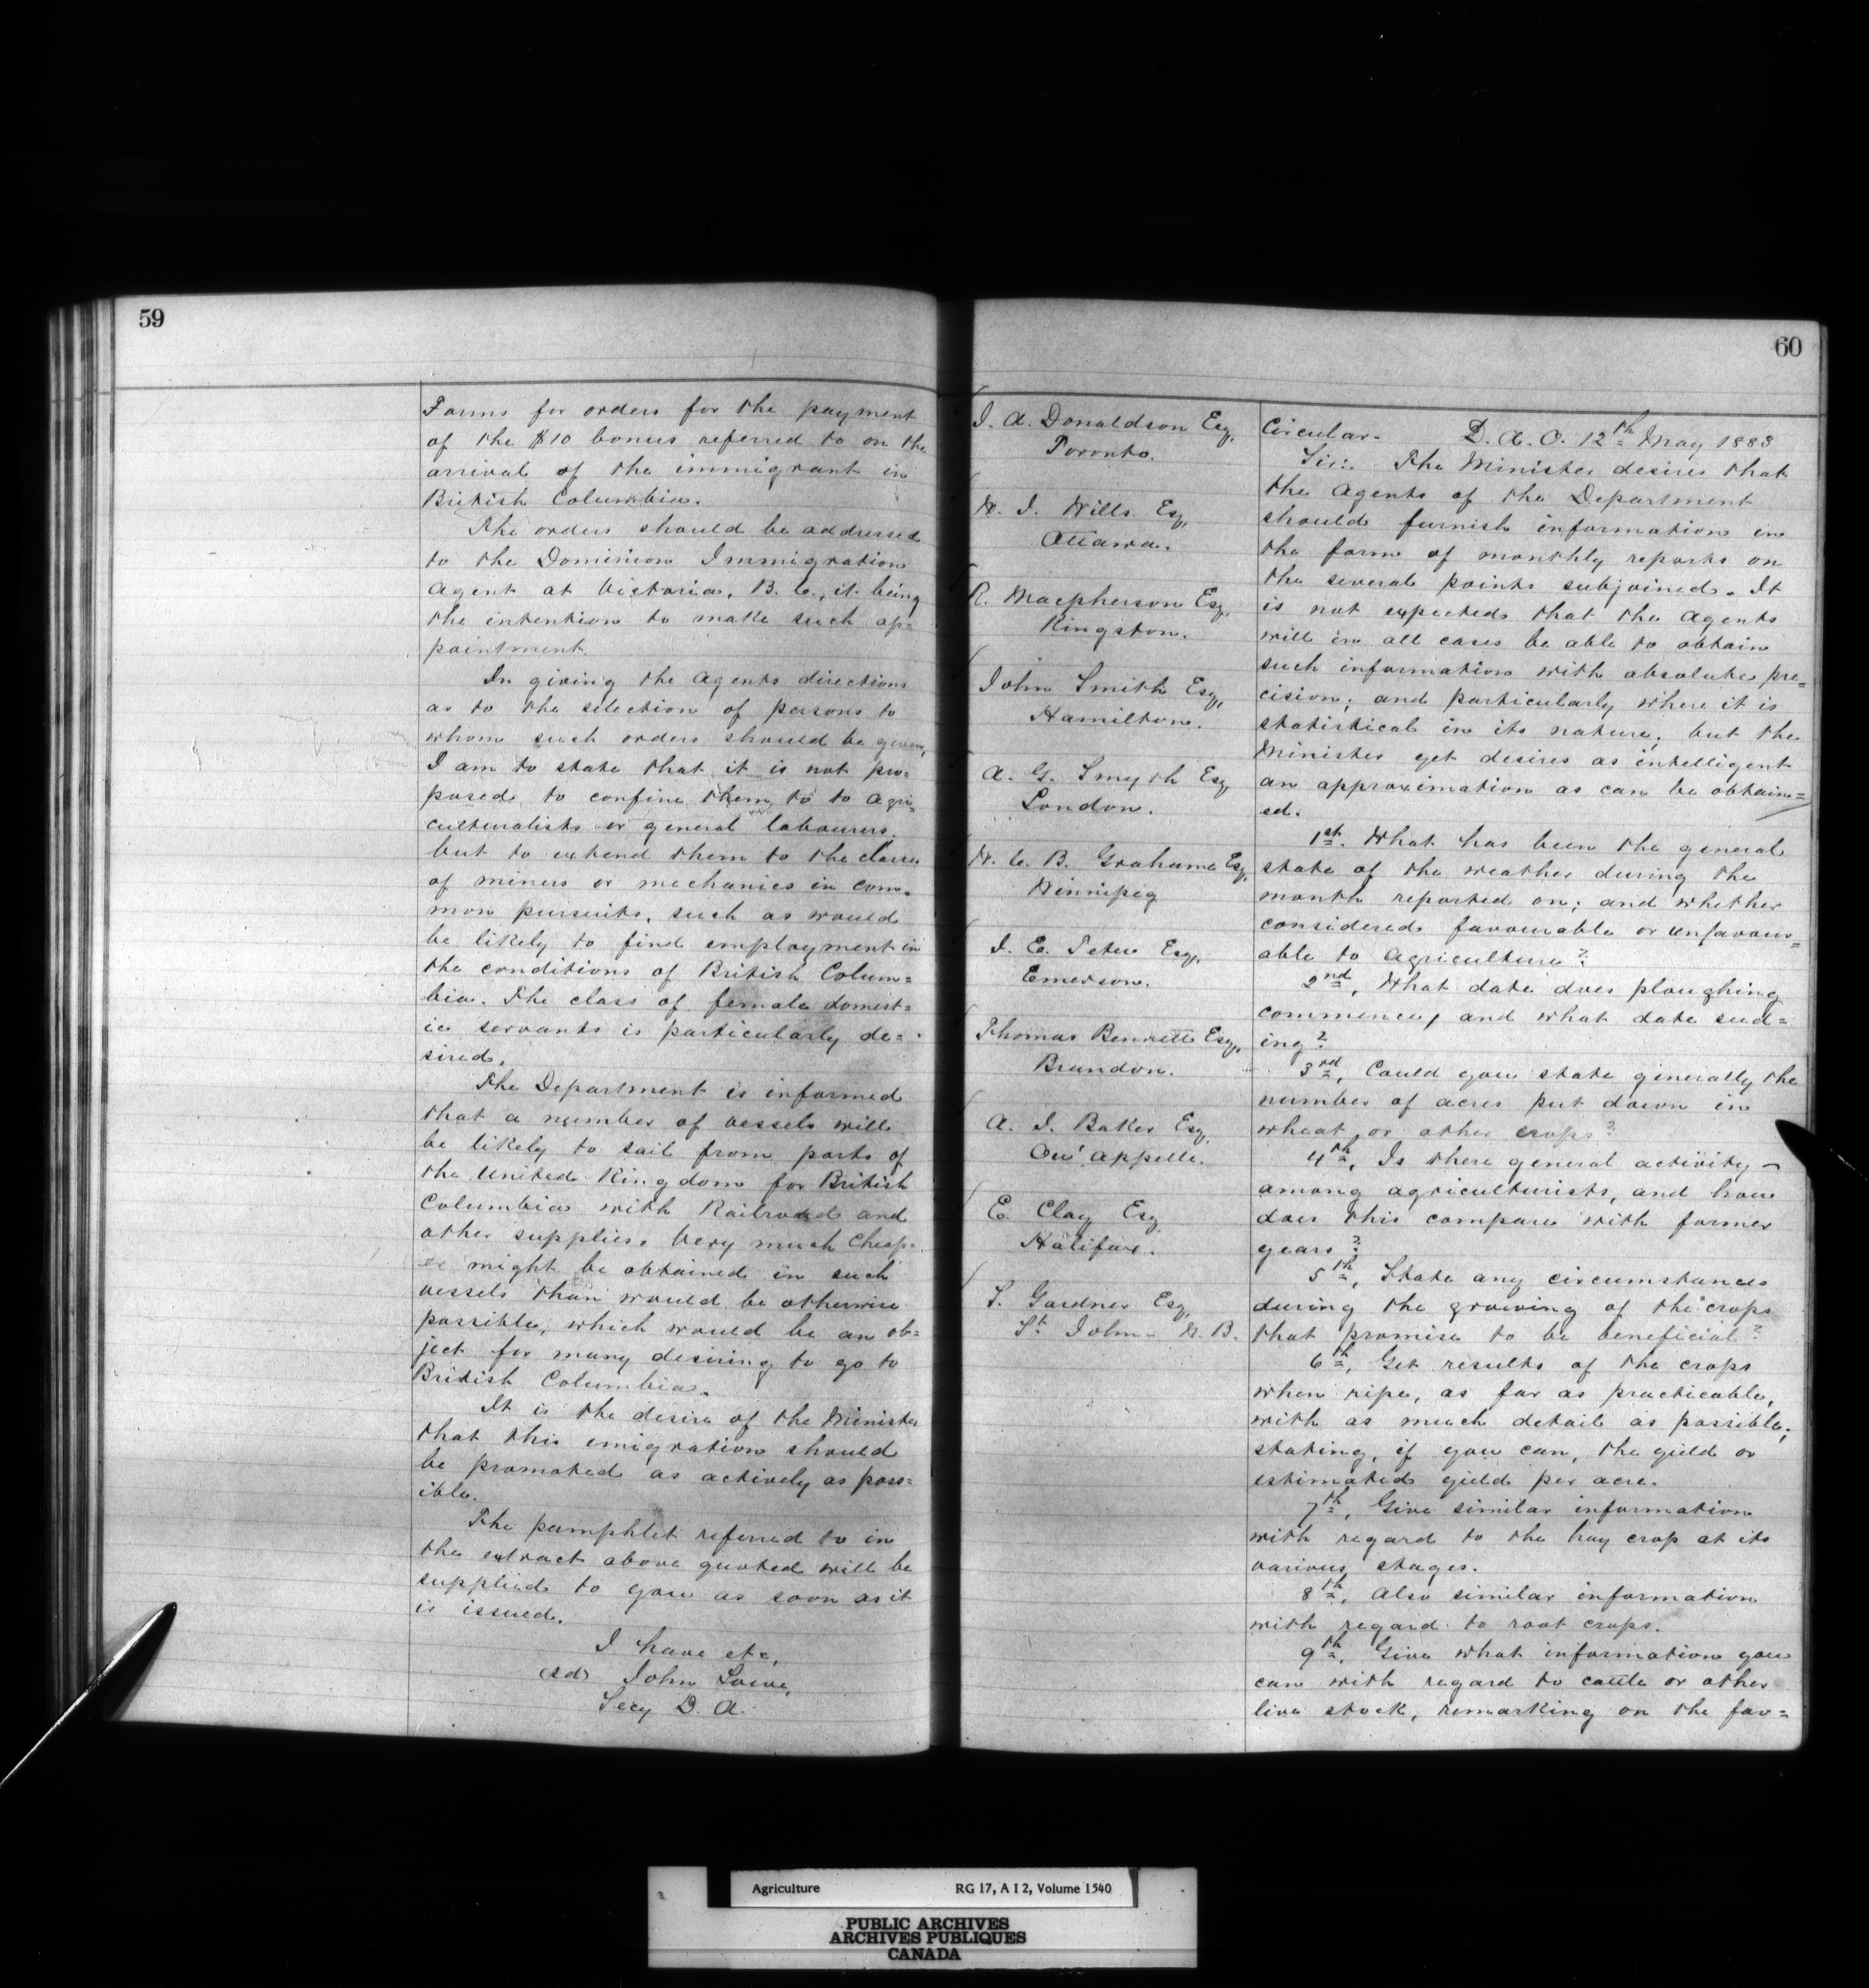 59
Forms for orders for the payment
of the $10 bonus referred to on the
arrival of the immigrant in
British Columbia.
The orders should be addressed
to the Dominion Immigration
Agent at Victoria, B. C., it being
the intention to make such ap=
pointment.
In giving the Agents directions
as to the selection of persons to
whom such orders should be given,
I am to state that it is not pro=
posed to confine them to to agri=
culturalists or general labourers,
but to extend them to the classes
of miners or mechanics in com=
mon pursuits, such as would
be likely to find employment in
the conditions of British Colum=
bia. The class of female domest=
ic servants is particularly de=
sired.
The Department is informed
that a number of vessels will
be likely to sail from ports of
the United Kingdom for British
Columbia with Railroad and
other supplies. Very much cheap=
er might be obtained in such
vessels than would be otherwise
possible, which would be an ob=
ject for many desiring to go to
British Columbia.
It is the desire of the Minister
that this emigration should
be promoted as actively as poss=
ible.
The pamphlet referred to in
the extract above quoted will be
supplied to you as soon as it
is issued.
I have etc,
(sd) John Lowe,
Secy D. A.
60
J. A. Donaldson Esq,
Toronto.
W. J. Wills Esq,
Ottawa.
R. Macpherson Esq,
Kingston.
John Smith Esq,
Hamilton.
A. G. Smyth Esq
London.
W. C. B. Grahame Esq,
Winnipeg
J. E. Tetu Esq,
Emerson.
Thomas Bennett Esq,
Brandon.
A. J. Baker Esq,
Qu'Appelle.
E. Clay Esq
Halifax.
S. Gardner Esq,
St. John - N. B.
Circular. D. A. O. 12th May 1883
Sir:. The Minister desires that
the Agents of the Department
should furnish information in
the form of monthly reports on
the several points subjoined. It
is not expected that the Agents
will in all cases be able to obtain
such information with absolute pre=
cision; and particularly where it is
statistical in its nature; but the
Minister yet desires as intelligent
an approximation as can be obtain=
ed.
1st. What has been the general
state of the weather during the
month reported on; and whether
considered favourable or unfavour=
able to Agriculture?
2nd, What date does ploughing
commence, and what date seed=
ing?
3rd, Could you state generally the
number of acres put down in
wheat, or other crops?
4th, Is there general activity
among agriculturists, and how
does this compare with former
years?
5th, State any circumstances
during the growing of the crops
that promise to be beneficial?
6th, Get results of the crops
when ripe, as far as practicable,
with as much detail as possible;
stating, if you can, the yield or
estimated yield per acre.
7th, Give similar information
with regard to the hay crop at its
various stages.
8th, Also similar information
with regard to root crops.
9th, Give what information you
can with regard to cattle or other
live stock, remarking on the fav=
Agriculture RG 17, A I 2, Volume 1540
PUBLIC ARCHIVES
ARCHIVES PUBLIQUES
CANADA